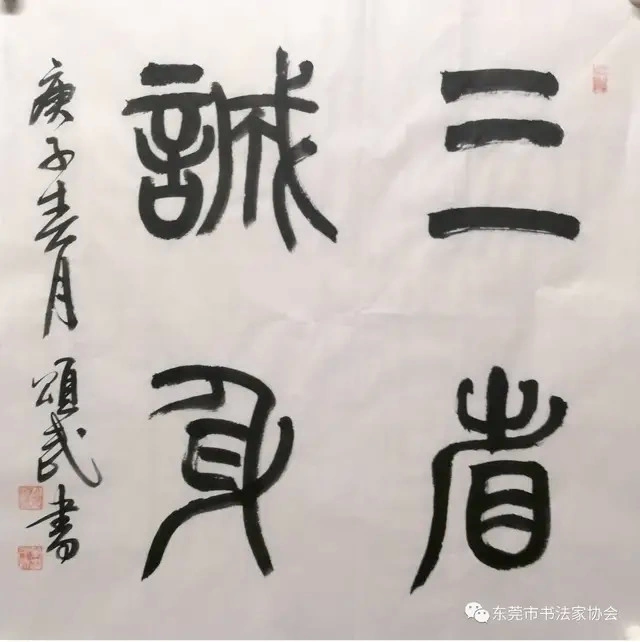 三省
誠身
庚子春月 頌武書
东莞市书法家协会